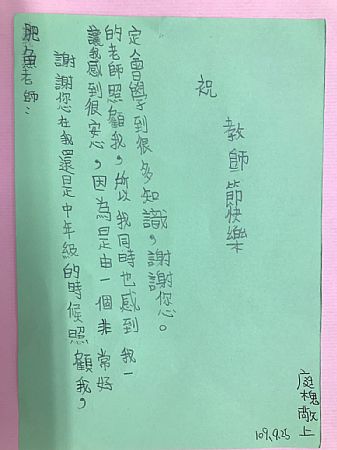 肥魚老師：
謝謝您在我還是中年級的時候照顧我，
讓我感到很安心，因為是由一個非常好
的老師照顧我，所以我同時也感到我一
定會學到很多知識，謝謝您。
祝
教師節快樂
庭槐敬上
109.9.25